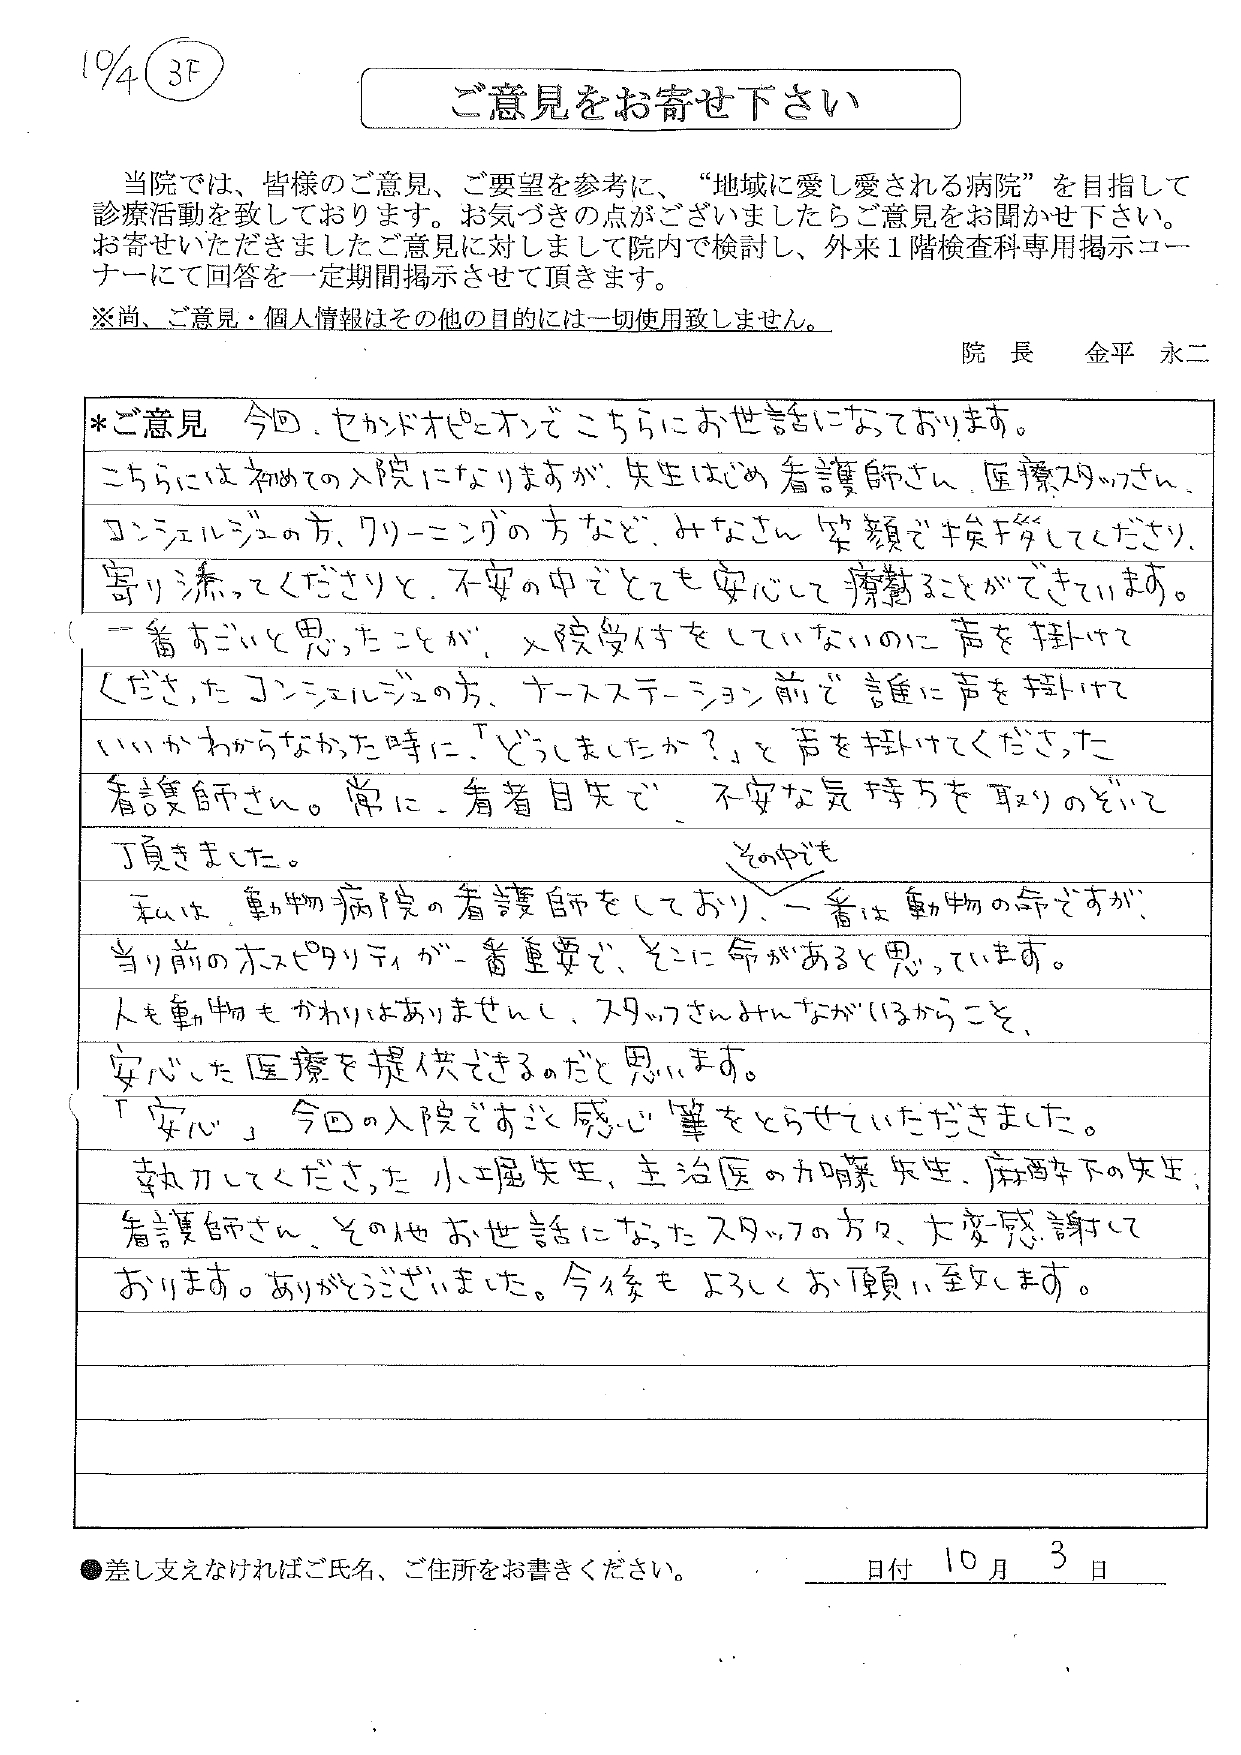 10/4 3F
ご意見をお寄せ下さい
当院では、皆様のご意見、ご要望を参考に、“地域に愛し愛される病院”を目指して
診療活動を致しております。お気づきの点がございましたらご意見をお聞かせ下さい。
お寄せいただきましたご意見に対しまして院内で検討し、外来1階検査科専用掲示コー
ナーにて回答を一定期間掲示させて頂きます。
※尚、ご意見・個人情報はその他の目的には一切使用致しません。
院 長 金平 永二
*ご意見 今回、セカンドオピニオンでこちらにお世話になっております。
こちらには初めての入院になりますが、先生はじめ看護師さん、医療スタッフさん、
コンシェルジュの方、クリーニングの方など、みなさん笑顔で挨拶してくださり、
寄り添ってくださりと、不安の中でとても安心して療養することができています。
一番すごいと思ったことが、入院受付をしていないのに声を掛けて
くださったコンシェルジュの方、ナースステーション前で誰に声を掛けて
いいかわからなかった時に、「どうしましたか?」と声を掛けてくださった
看護師さん。常に、看者目先で、不安な気持ちを取りのぞいて
頂きました。
その中でも
私は、動物病院の看護師をしており、一番は動物の命ですが、
当り前のホスピタリティが一番重要で、そこに命があると思っています。
人も動物もかわりはありませんし、スタッフさんみんながいるからこそ、
安心した医療を提供できるのだと思います。
「安心」今回の入院ですごく感じ筆をとらせていただきました。
執刀してくださった小堀先生、主治医の加藤先生、麻酔下の先生、
看護師さん、その他お世話になったスタッフの方々、大変感謝して
おります。ありがとうございました。今後もよろしくお願い致します。
●差し支えなければご氏名、ご住所をお書きください。 日付 10月 3日